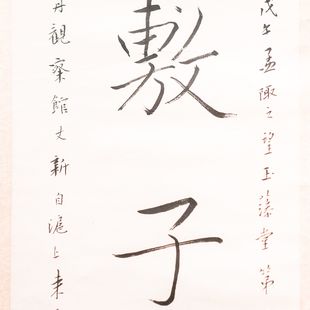 戊午孟陬之望玉藻堂第
敷子
觀察館丈新自滬上来